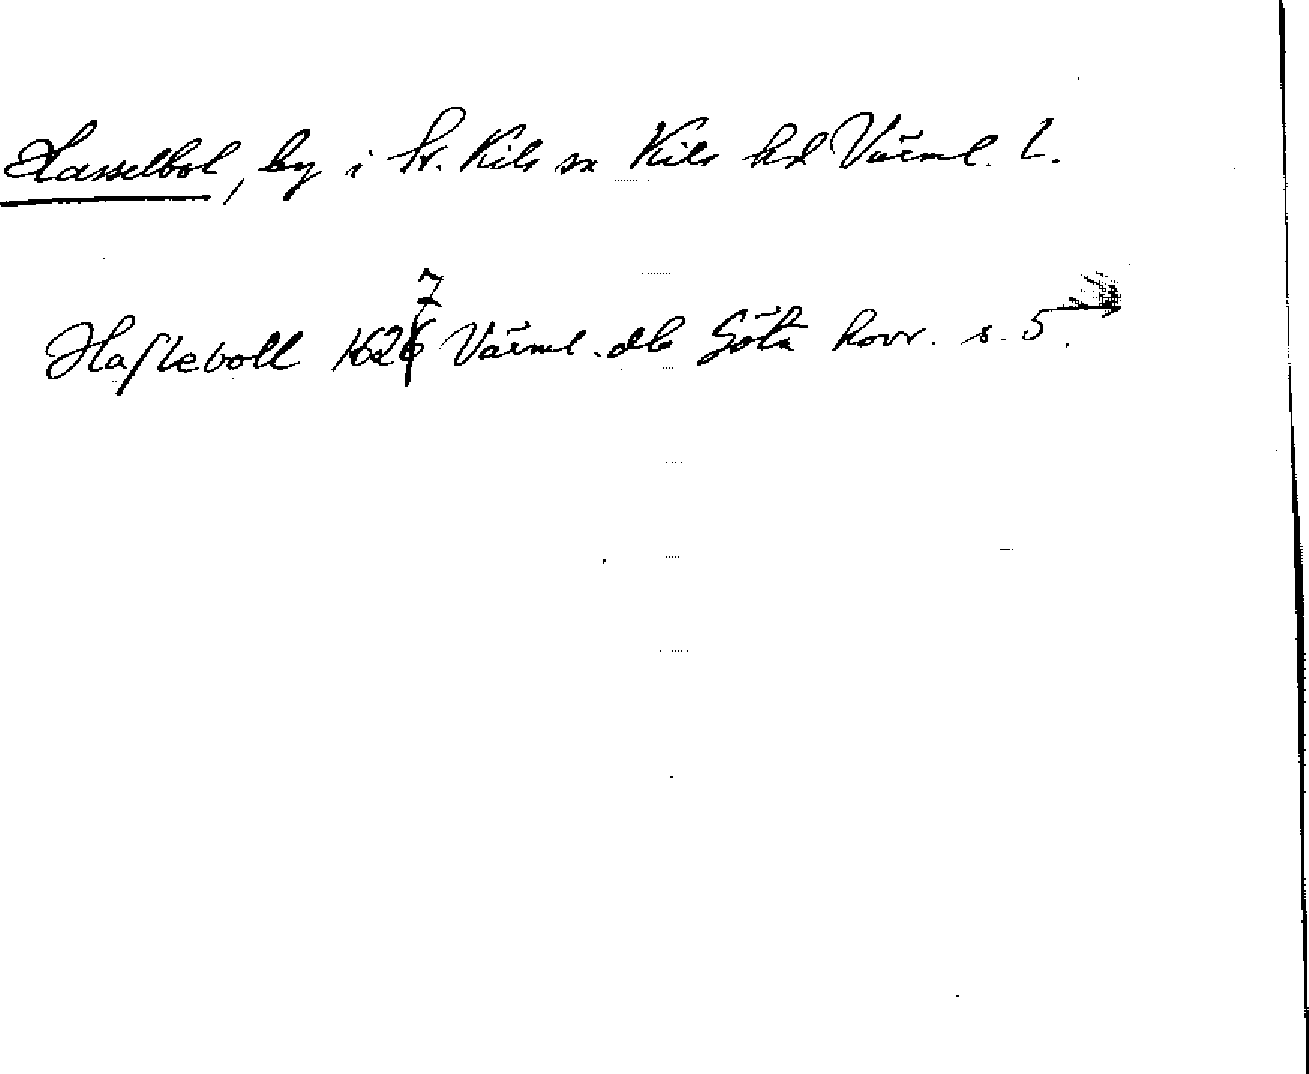 Hasselbol, by i Sr. Kils sn Kils hd Värml. L.
Hasleboll 1627 Värml. dlr Göta hovr. s. 5.